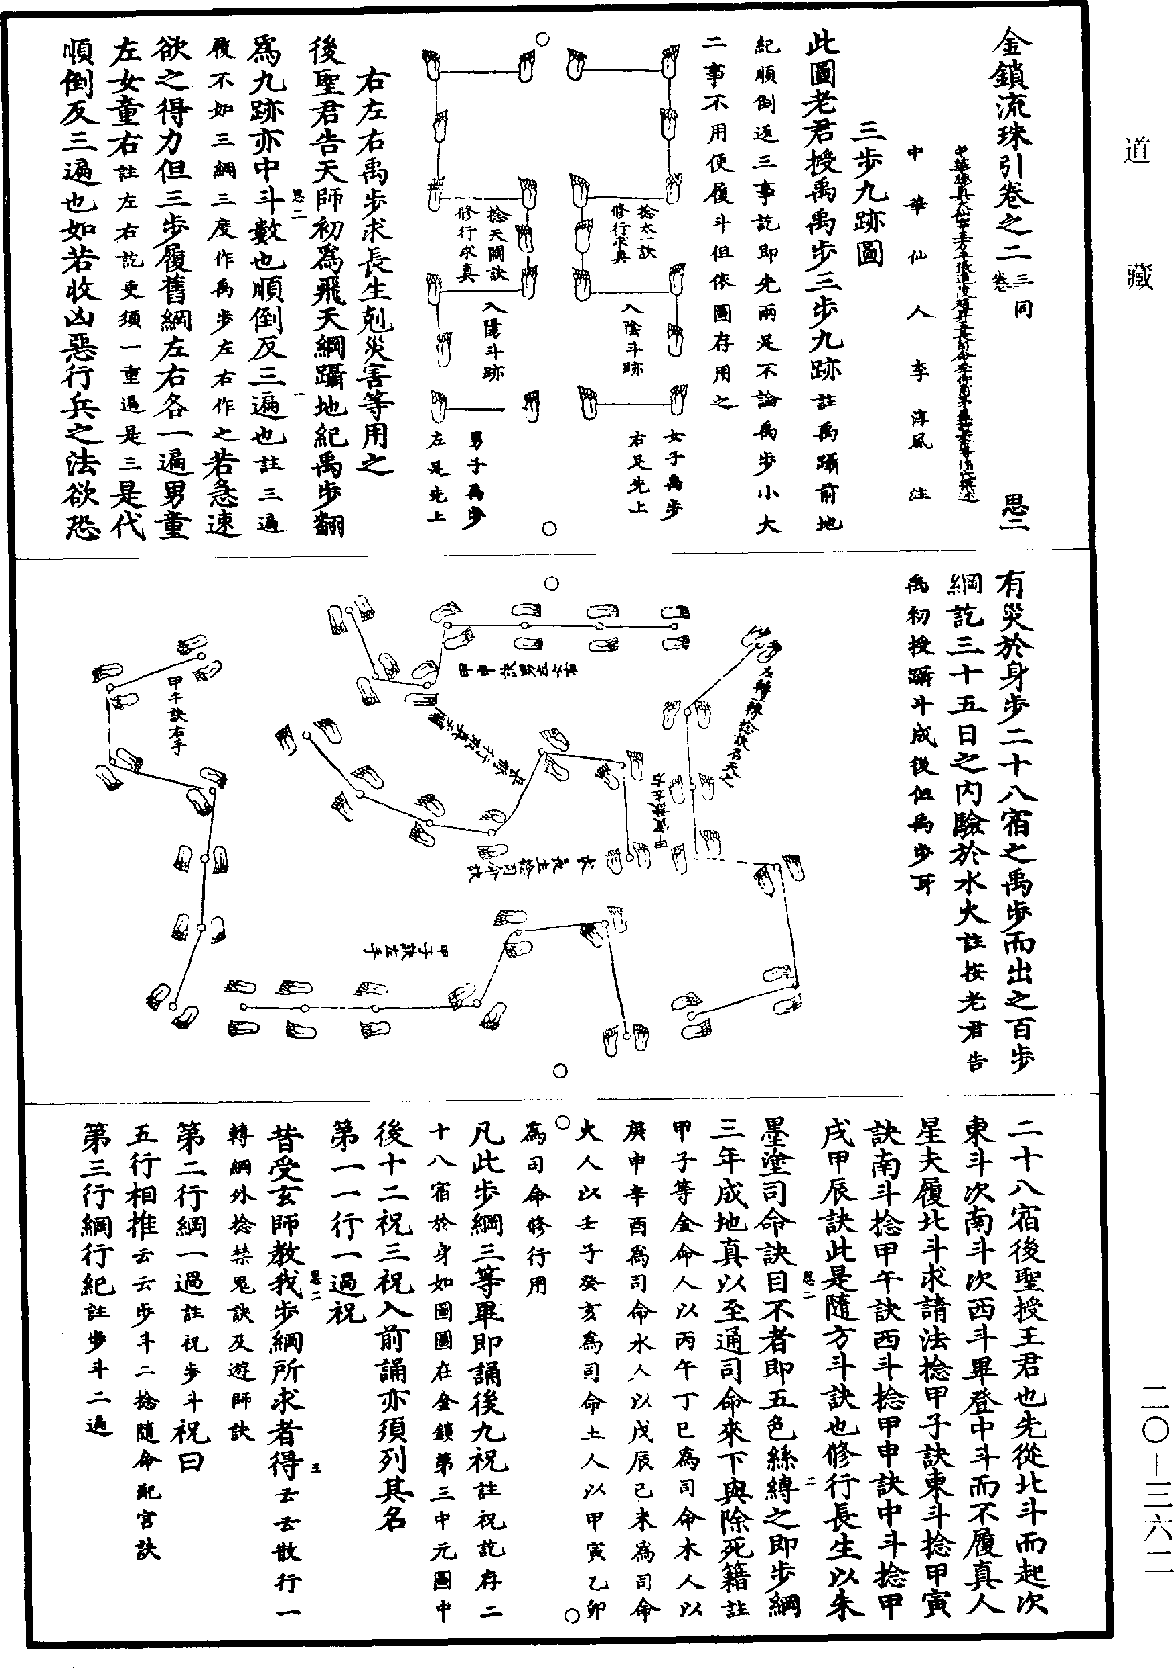 道藏
金鎖流珠引卷之二 三同卷 思二
中華仙人李淳風註
三步九跡圖
此圖老君授禹禹步三步九跡註禹躡前地
紀順倒返三事訖即先兩足不論禹步小大
二事不用便履斗但依圖存用之
女子禹步
右足先上
捻太一訣
修行求真
入陰斗跡
男子禹步
左足先上
捻天關訣
修行求真
入陽斗跡
右左右禹步求長生剋災害等用之
後聖君告天師初為飛天綱躡地紀禹步翻
為九跡亦中斗數也順倒反三遍也註三遍
履不如三綱三度作禹步左右作之若急速
欲之得力但三步履舊綱左右各一遍男童
左女童右註左右訖更須一重過是三是代
順倒反三遍也如若收凶惡行兵之法欲恐
思二
有災於身步二十八宿之禹步而出之百步
綱訖三十五日之內驗於水火註按老君告
禹初授躡斗成後但禹步耳
甲午訣右手
甲子訣左手
二十八宿後聖授王君也先從北斗而起次
東斗次南斗次西斗畢登中斗而不履真人
星夫履北斗求請法捻甲子訣東斗捻甲寅
訣南斗捻甲午訣西斗捻甲申訣中斗捻甲
戌甲辰訣此是隨方斗訣也修行長生以朱
墨塗司命訣目不者即五色絲縛之即步綱
三年成地真以至通司命來下與除死籍註
甲子等金命人以丙午丁巳為司命木人以
庚申辛酉為司命水人以戊辰己未為司命
火人以壬子癸亥為司命土人以甲寅乙卯
為司命修行用
凡此步綱三等畢即誦後九祝註祝訖存二
十八宿於身如圖圖在金鎖第三中元圖中
後十二祝三祝入前誦亦須列其名
第一一行一過祝
昔受玄師教我步綱所求者得云云散行一
轉綱外捻禁鬼訣及遊師訣
第二行綱一過註祝步斗祝曰
五行相推云云步斗二捻隨命配宮訣
第三行綱行紀註步斗二過
思二
二〇—三六二